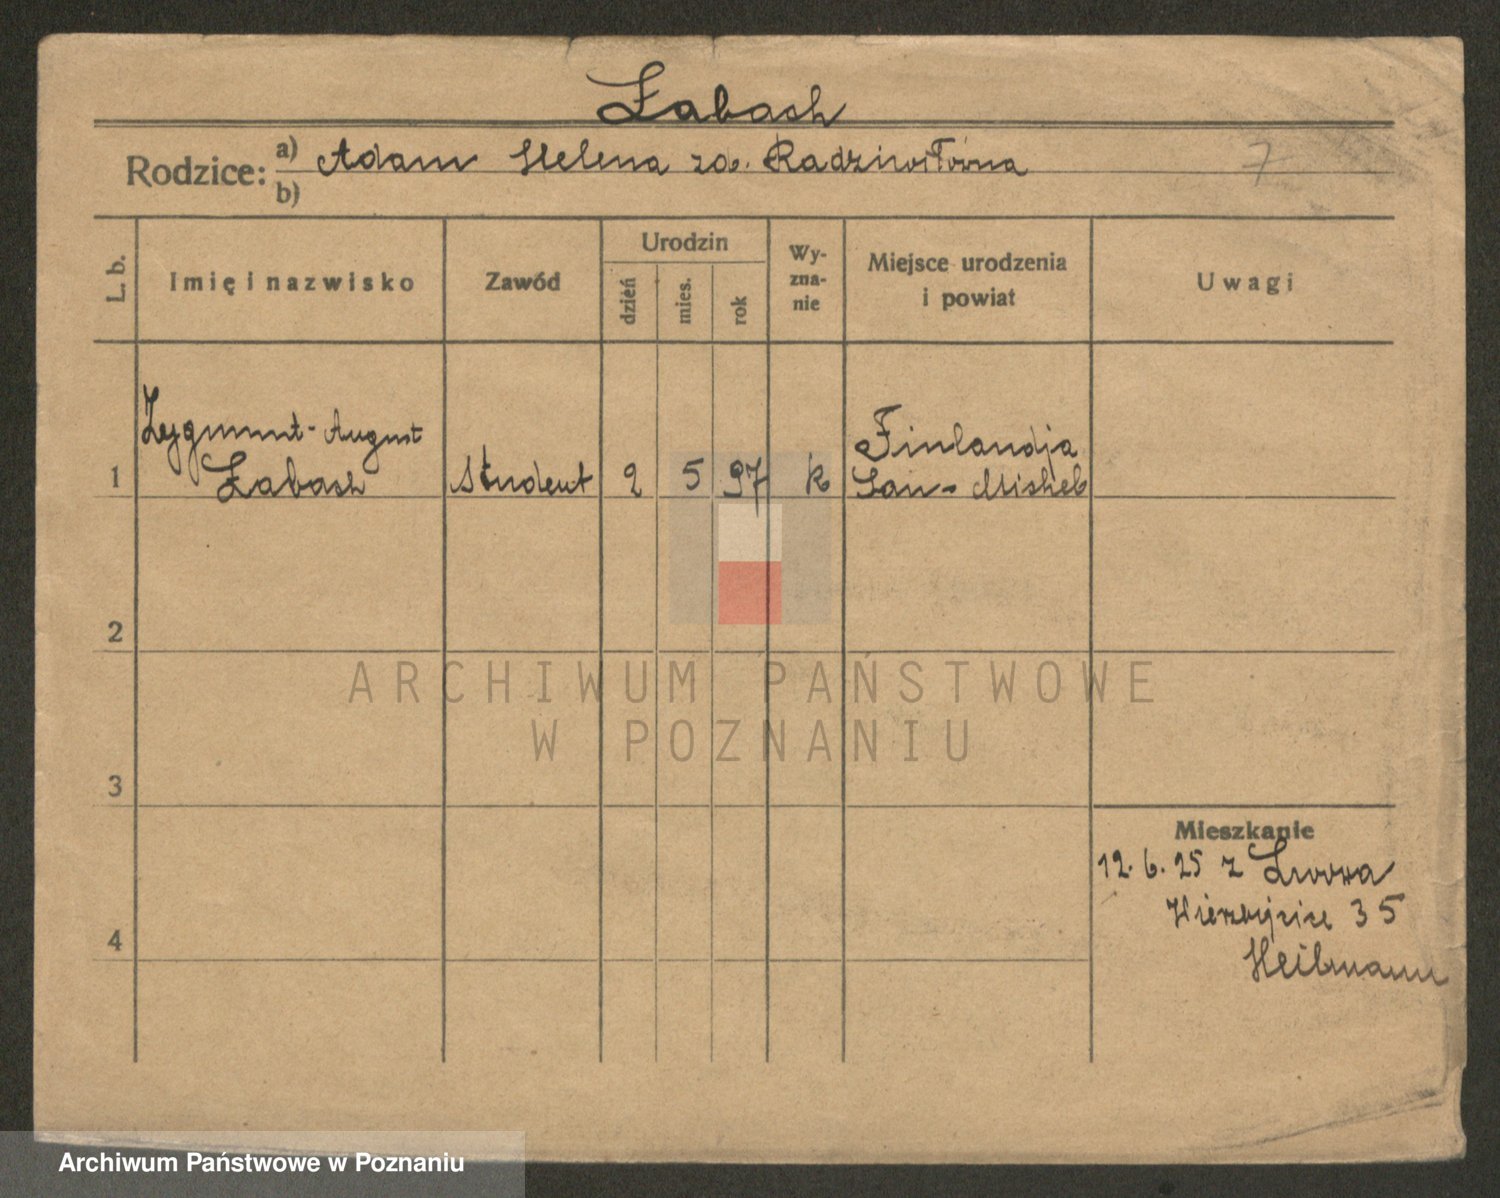 Łabach
Rodzice: a) Adam Helena zd. Radziwiłówna 7
b)
L. b. Imię i nazwisko Zawód Urodzin dzień mies. rok Wy-zna-nie Miejsce urodzenia i powiat Uwagi
Zygmunt-August Finlandja
1 Łabach Student 2 5 97 k San-Mishel
2
ARCHIWUM PAŃSTWOWE
W POZNANIU
3
Mieszkanie
12. 6. 25 z Lwowa
Wierzbięcice 35
4
Heilmann
Archiwum Państwowe w Poznaniu